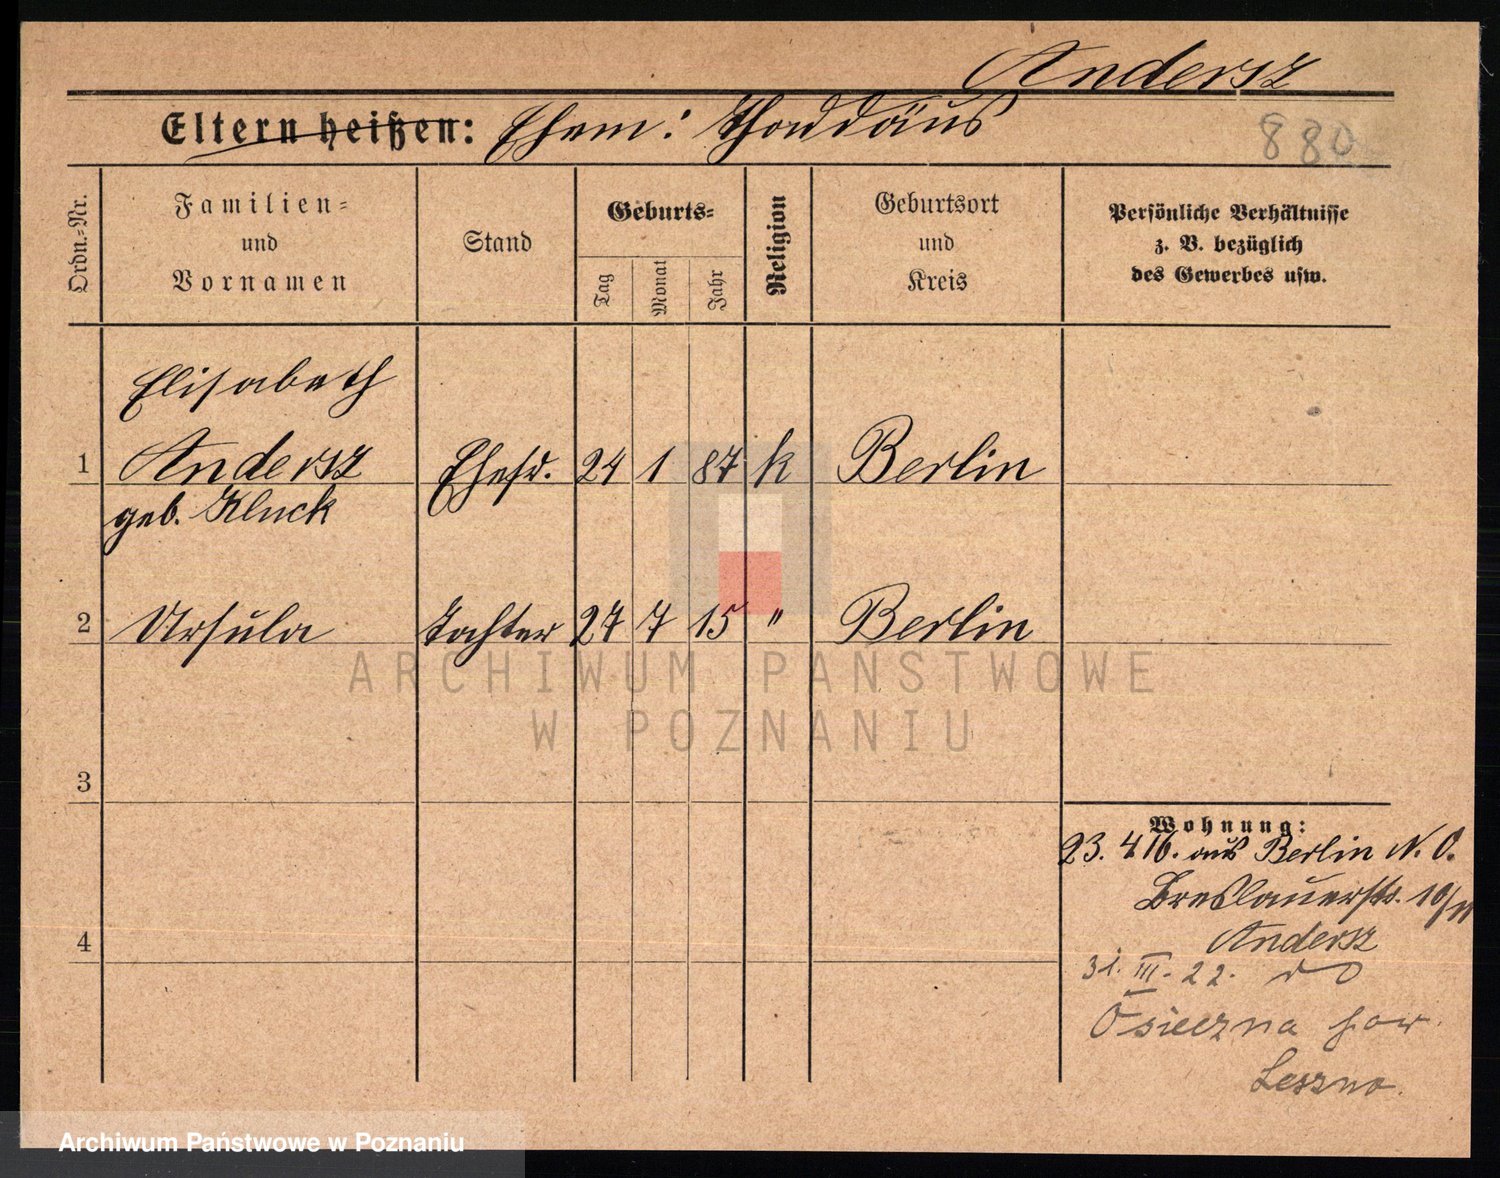 Andersz
Eltern heißen: Ehem: Thaddäus
880
Ordn.-Nr.
Familien-
und
Vornamen
Stand
Geburts-
Tag
Monat
Jahr
Religion
Geburtsort
und
Kreis
Persönliche Verhältnisse
z. B. bezüglich
des Gewerbes usw.
Elisabeth
1 Andersz Ehefr. 24 1 87 k Berlin
geb. Kluck
2 Ursula Tochter 27 7 15 " Berlin
ARCHIWUM PAŃSTWOWE
W POZNANIU
3
Wohnung:
23. 4 16. aus Berlin N. O.
Breslauerstr. 10/11
4
Andersz
31. III. 22. do
Osieczna pow.
Leszno.
Archiwum Państwowe w Poznaniu